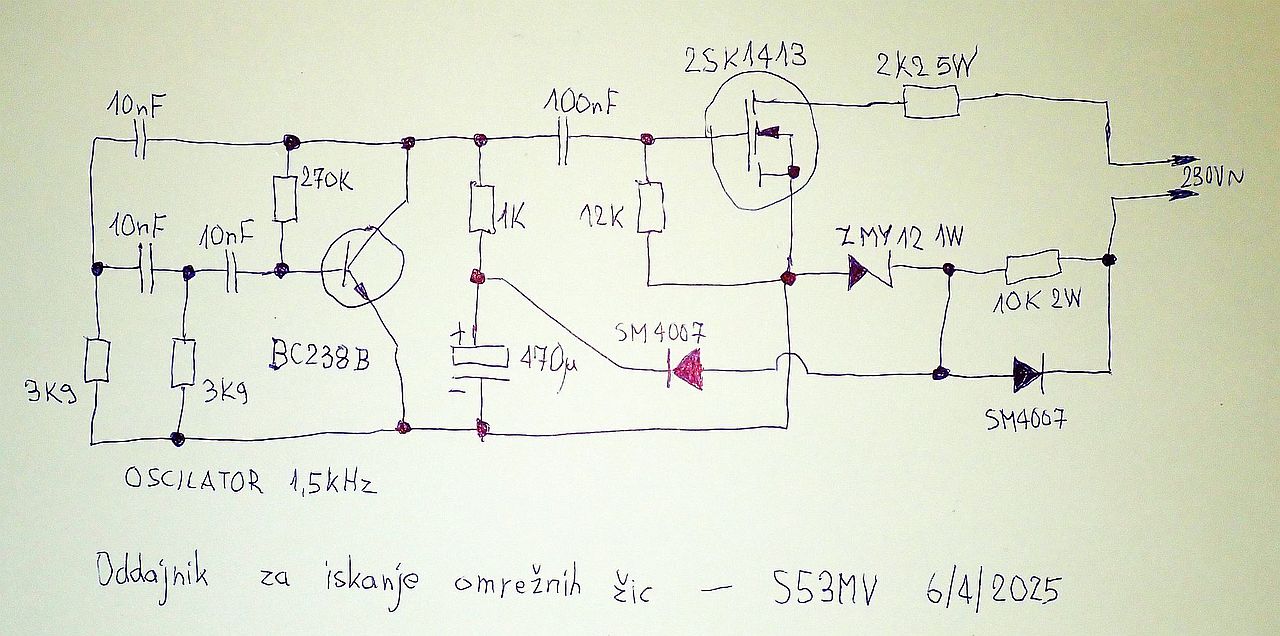 2SK1413
2K2 5W
10nF
100nF
270K
1K
12K
230V~
10nF
10nF
ZMY12 1W
10K 2W
SM4007
BC238B
+
470µ
-
3K9
3K9
SM4007
OSCILATOR 1,5kHz
Oddajnik za iskanje omrežnih žic - S53MV 6/4/2025